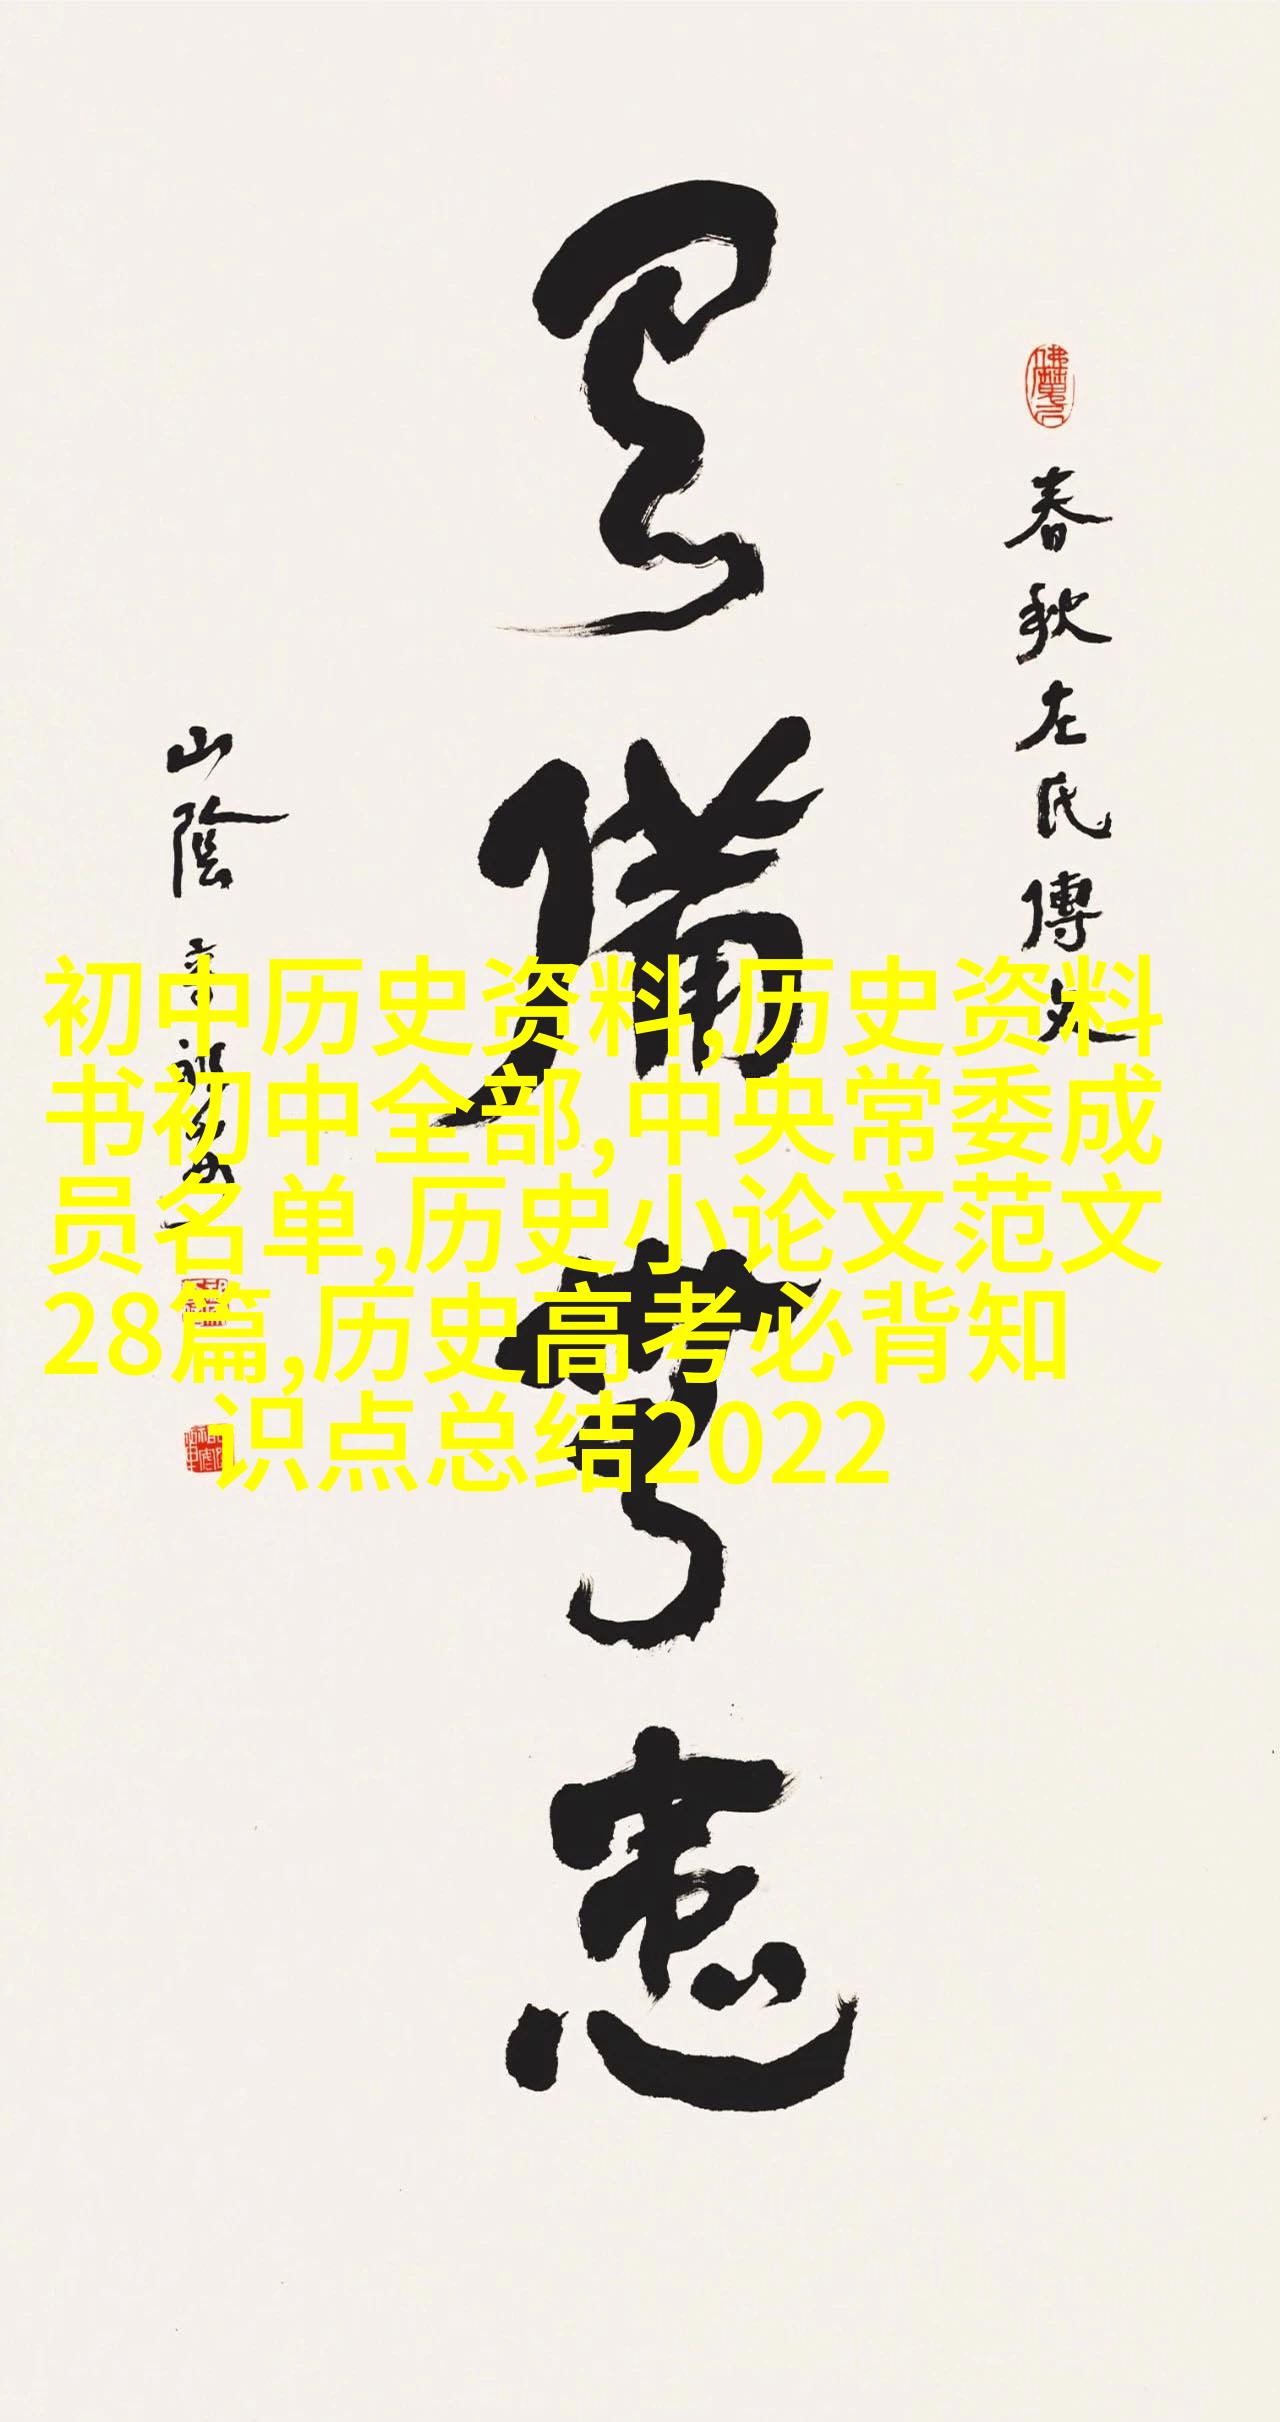 春秋左氏傳文
有備無患
山陰
初中历史资料,历史资料
书初中全部,中央常委成
员名单,历史小论文范文
28篇,历史高考必背知
识点总结2022